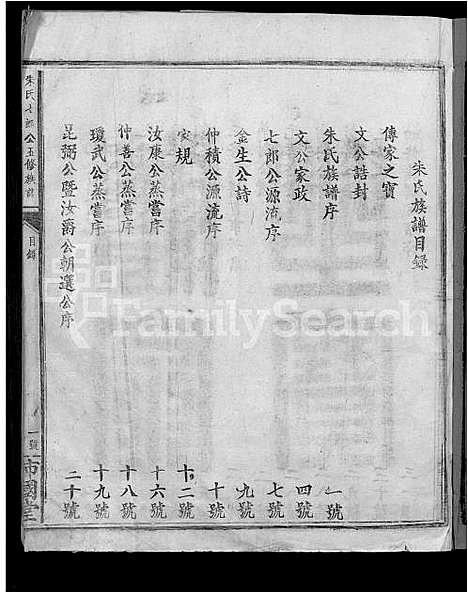 朱氏族譜目錄
傳家之寶
文公誥封
朱氏族譜序 一號
文公家政 四號
七郎公源流序 七號
金生公詩 九號
仲積公源流序 十號
家規 十二號
汝康公蒸嘗序 十六號
仲善公蒸嘗序 十八號
瓊武公蒸嘗序 十九號
昆弼公暨汝爵公朝選公序 二十號
朱氏七郎公五修族譜
目錄
一號
FamilySearch